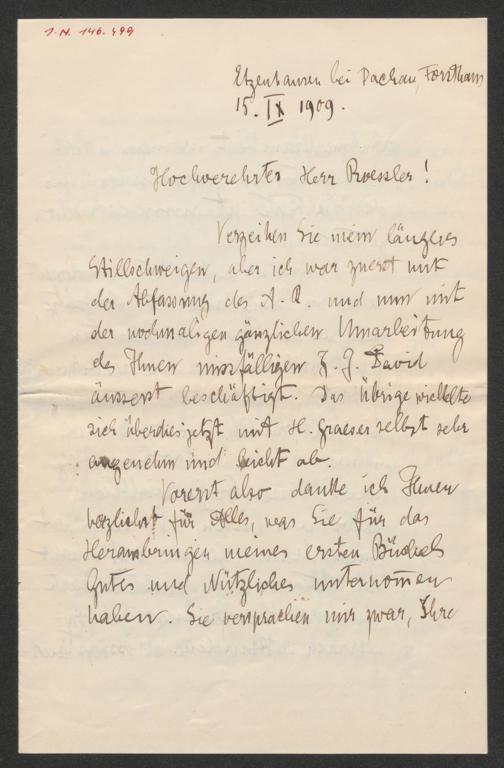 J.N. 146.499
Etzenhausen bei Dachau, Forsthaus
15. IX 1909.
Hochverehrter Herr Roessler!
Verzeihen Sie mein längeres
Stillschweigen, aber ich war zuerst mit
der Abfassung des A. R. und nun mit
der nochmaligen gänzlichen Umarbeitung
des Ihnen missfälligen J. J. David
äusserst beschäftigt. Das Übrige wickelte
sich überdies jetzt mit H. Graeser selbst sehr
angenehm und leicht ab.
Vorerst also danke ich Ihnen
herzlichst für Alles, was Sie für das
Herausbringen meines ersten Büchels
Gutes und Nützliches unternom̅en
haben. Sie versprachen mir zwar, Ihre